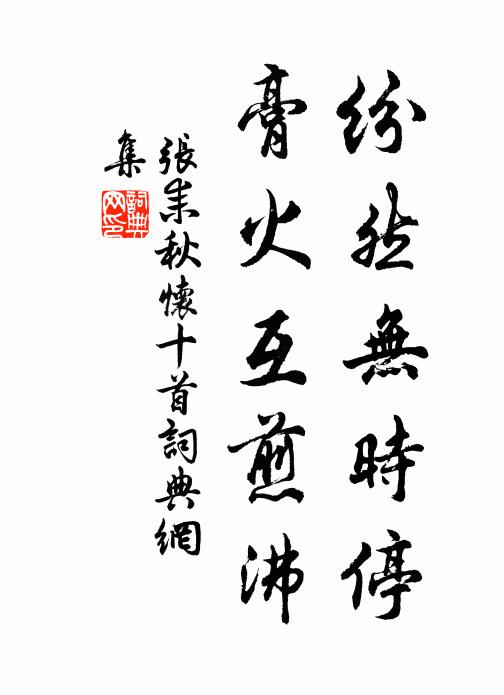 紛然無時停
膏火互煎沸
張耒秋懷十首詞典網
集
詞典
网印